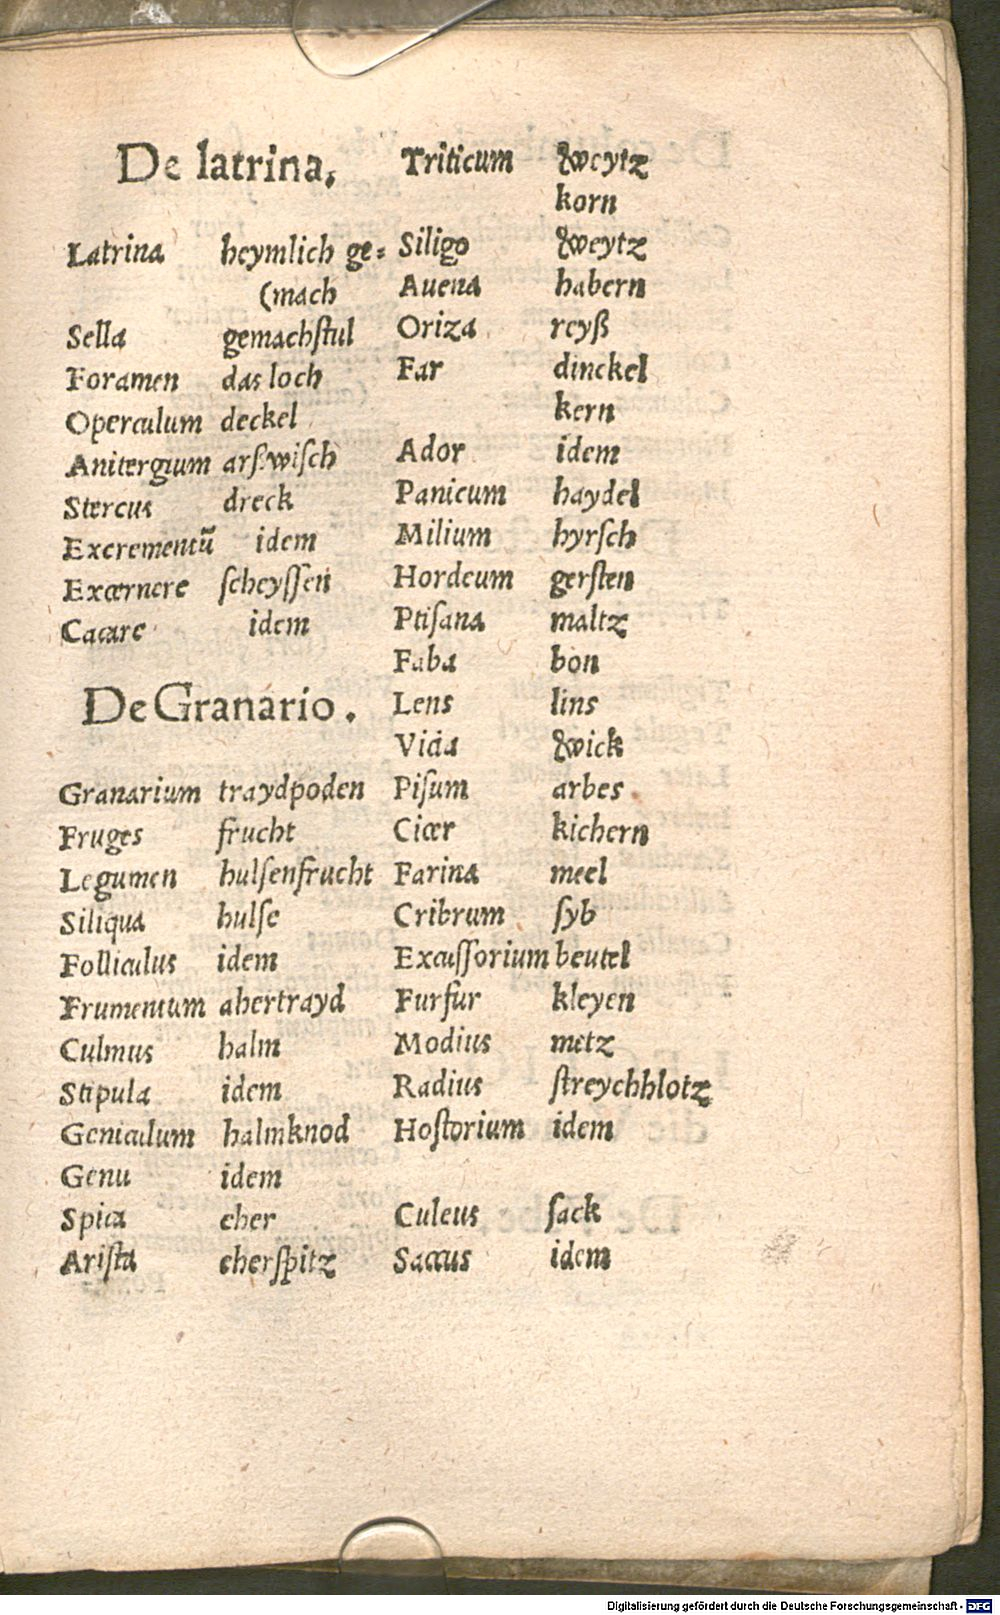 De latrina.
Latrina heymlich ge-
(mach
Sella gemachſtul
Foramen das loch
Operculum deckel
Anitergium arſzwiſch
Stercus dreck
Excrementū idem
Excernere ſcheyſſen
Cacare idem
De Granario.
Granarium traydpoden
Fruges frucht
Legumen hulſenfrucht
Siliqua hulſe
Folliculus idem
Frumentum ahertrayd
Culmus halm
Stipula idem
Geniculum halmknod
Genu idem
Spica eher
Ariſta eherſpitz
Triticum weytz
korn
Siligo weytz
Auena habern
Oriza reyß
Far dinckel
kern
Ador idem
Panicum haydel
Milium hyrſch
Hordeum gerſten
Ptiſana maltz
Faba bon
Lens lins
Vicia wick
Piſum arbes
Cicer kichern
Farina meel
Cribrum ſyb
Excuſſorium beutel
Furfur kleyen
Modius metz
Radius ſtreychhlotz
Hoſtorium idem
Culeus ſack
Saccus idem
Digitalisierung gefördert durch die Deutsche Forschungsgemeinschaft - DFG